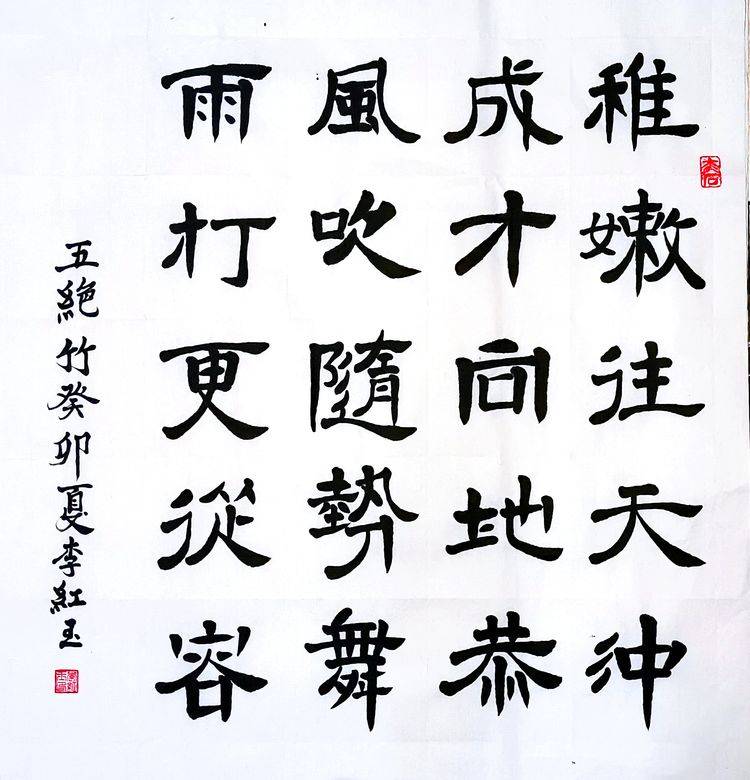 稚嫩往天沖
成才向地恭
風吹隨勢舞
雨打更從容
五絕竹癸卯夏李紅玉